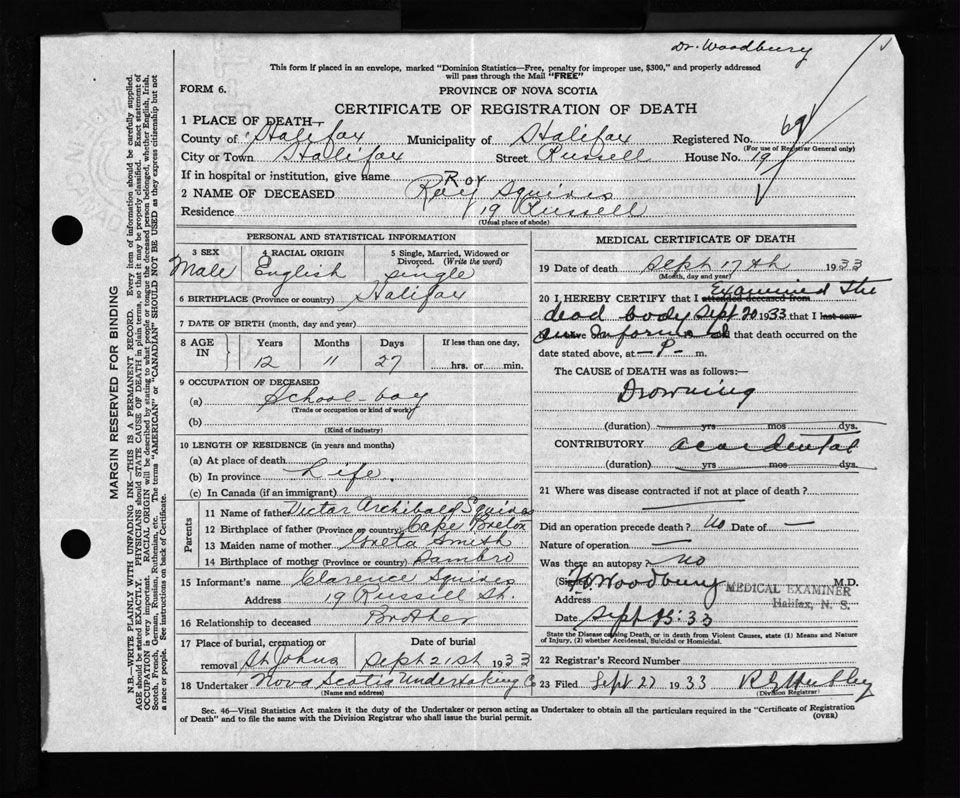 Dr. Woodbury
This form if placed in an envelope, marked "Dominion Statistics—Free, penalty for improper use, $300," and properly addressed
will pass through the Mail "FREE"
FORM 6.
PROVINCE OF NOVA SCOTIA
CERTIFICATE OF REGISTRATION OF DEATH
1 PLACE OF DEATH—
County of Halifax Municipality of Halifax Registered No.
(For use of Registrar General only)
City or Town Halifax Street Russell House No. 19
If in hospital or institution, give name
Roy
2 NAME OF DECEASED Roy Squires
Residence 19 Russell
(Usual place of abode)
PERSONAL AND STATISTICAL INFORMATION
3 SEX
Male
4 RACIAL ORIGIN
English
5 Single, Married, Widowed or
Divorced. (Write the word)
Single
6 BIRTHPLACE (Province or country) Halifax
7 DATE OF BIRTH (month, day and year)
8 AGE
IN
Years Months Days If less than one day,
12 11 27 hrs. or min.
9 OCCUPATION OF DECEASED
(a) School-boy
(Trade or occupation or kind of work)
(b)
(Kind of industry)
10 LENGTH OF RESIDENCE (in years and months)
(a) At place of death
(b) In province Life.
(c) In Canada (if an immigrant)
Parents
11 Name of father Victor Archibald Squires
12 Birthplace of father (Province or country) Cape Breton
13 Maiden name of mother Greta Smith
14 Birthplace of mother (Province or country) Sambro
15 Informant's name Clarence Squires
Address 19 Russell St.
16 Relationship to deceased Brother
17 Place of burial, cremation or Date of burial
removal St Johns Sept 21st 1933
18 Undertaker Nova Scotia Undertaking Co
(Name and address)
MEDICAL CERTIFICATE OF DEATH
19 Date of death Sept 17th 1933
(Month, day and year)
Examined the
20 I HEREBY CERTIFY that I attended deceased from
dead body Sept 20 1933 that I last saw
alive on Informed and that death occurred on the
date stated above, at —P— m.
The CAUSE of DEATH was as follows:—
Drowning
(duration) yrs mos dys.
CONTRIBUTORY accidental
(duration) yrs mos dys.
21 Where was disease contracted if not at place of death?
Did an operation precede death? No Date of —
Nature of operation —
Was there an autopsy No
(Signed) Woodbury M.D.
MEDICAL EXAMINER
Halifax, N. S.
Address
Date Sept 33
State the Disease causing Death, or in death from Violent Causes, state (1) Means and Nature
of Injury, (2) whether Accidental, Suicidal or Homicidal.
22 Registrar's Record Number
23 Filed Sept 1933
(Division Registrar)
Sec. 46—Vital Statistics Act makes it the duty of the Undertaker or person acting as Undertaker to obtain all the particulars required in the "Certificate of Registration
of Death" and to file the same with the Division Registrar who shall issue the burial permit.
(OVER)
MARGIN RESERVED FOR BINDING
N.B.—WRITE PLAINLY WITH UNFADING INK—THIS IS A PERMANENT RECORD. Every item of information should be carefully supplied.
AGE should be stated EXACTLY. PHYSICIANS should STATE CAUSE OF DEATH in plain terms, so that it may be properly classified. Exact statement of
OCCUPATION is very important. RACIAL ORIGIN will be described by stating to what people or tongue the deceased person belonged, whether English, Irish,
Scotch, French, German, Russian, Ruthenian, etc. The terms "AMERICAN" or "CANADIAN" SHOULD NOT BE USED as they express citizenship but not
a race or people. See instructions on back of Certificate.